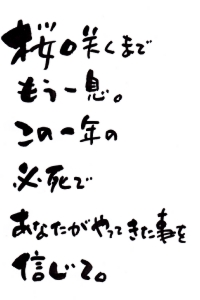 桜咲くまで
もう一息。
この一年の
必死で
あなたがやってきた事を
信じて。